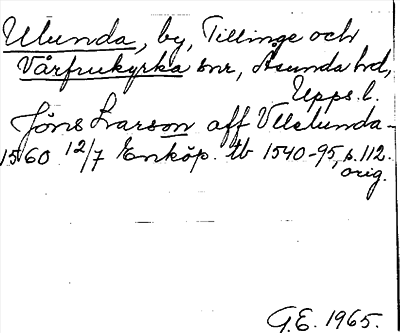 Ulunda, by, Tillinge och
Vårfrukyrka snr, Åsunda hd,
Upps. l.
Jöns Larson aff Vllslunda -
1560 12/7 Enköp. tb 1540-95, s. 112.
orig.
G.E. 1965.